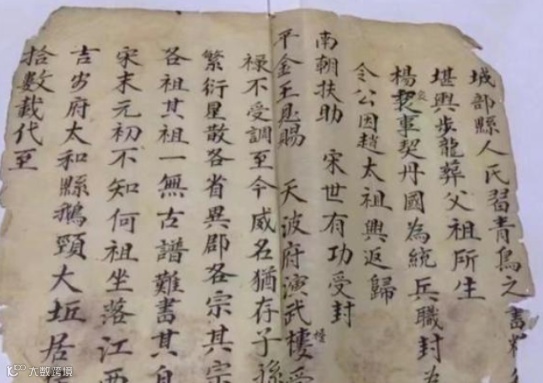 城部縣人民習青鳥之書
堪輿步龍葬父祖所生
楊袞事契丹國為統兵職封
令公因趙太祖興返歸
南朝扶助 宋世有功受封
平金王恩賜 天波府演武樓受
祿不受調至今威名猶存子孫
繁衍星散各省異郡各宗其宗
各祖其祖一無古譜難書其
宋末元初不知何祖坐落江西
吉安府太和縣鵝頸大坵居
拾數載代至
大数跨境